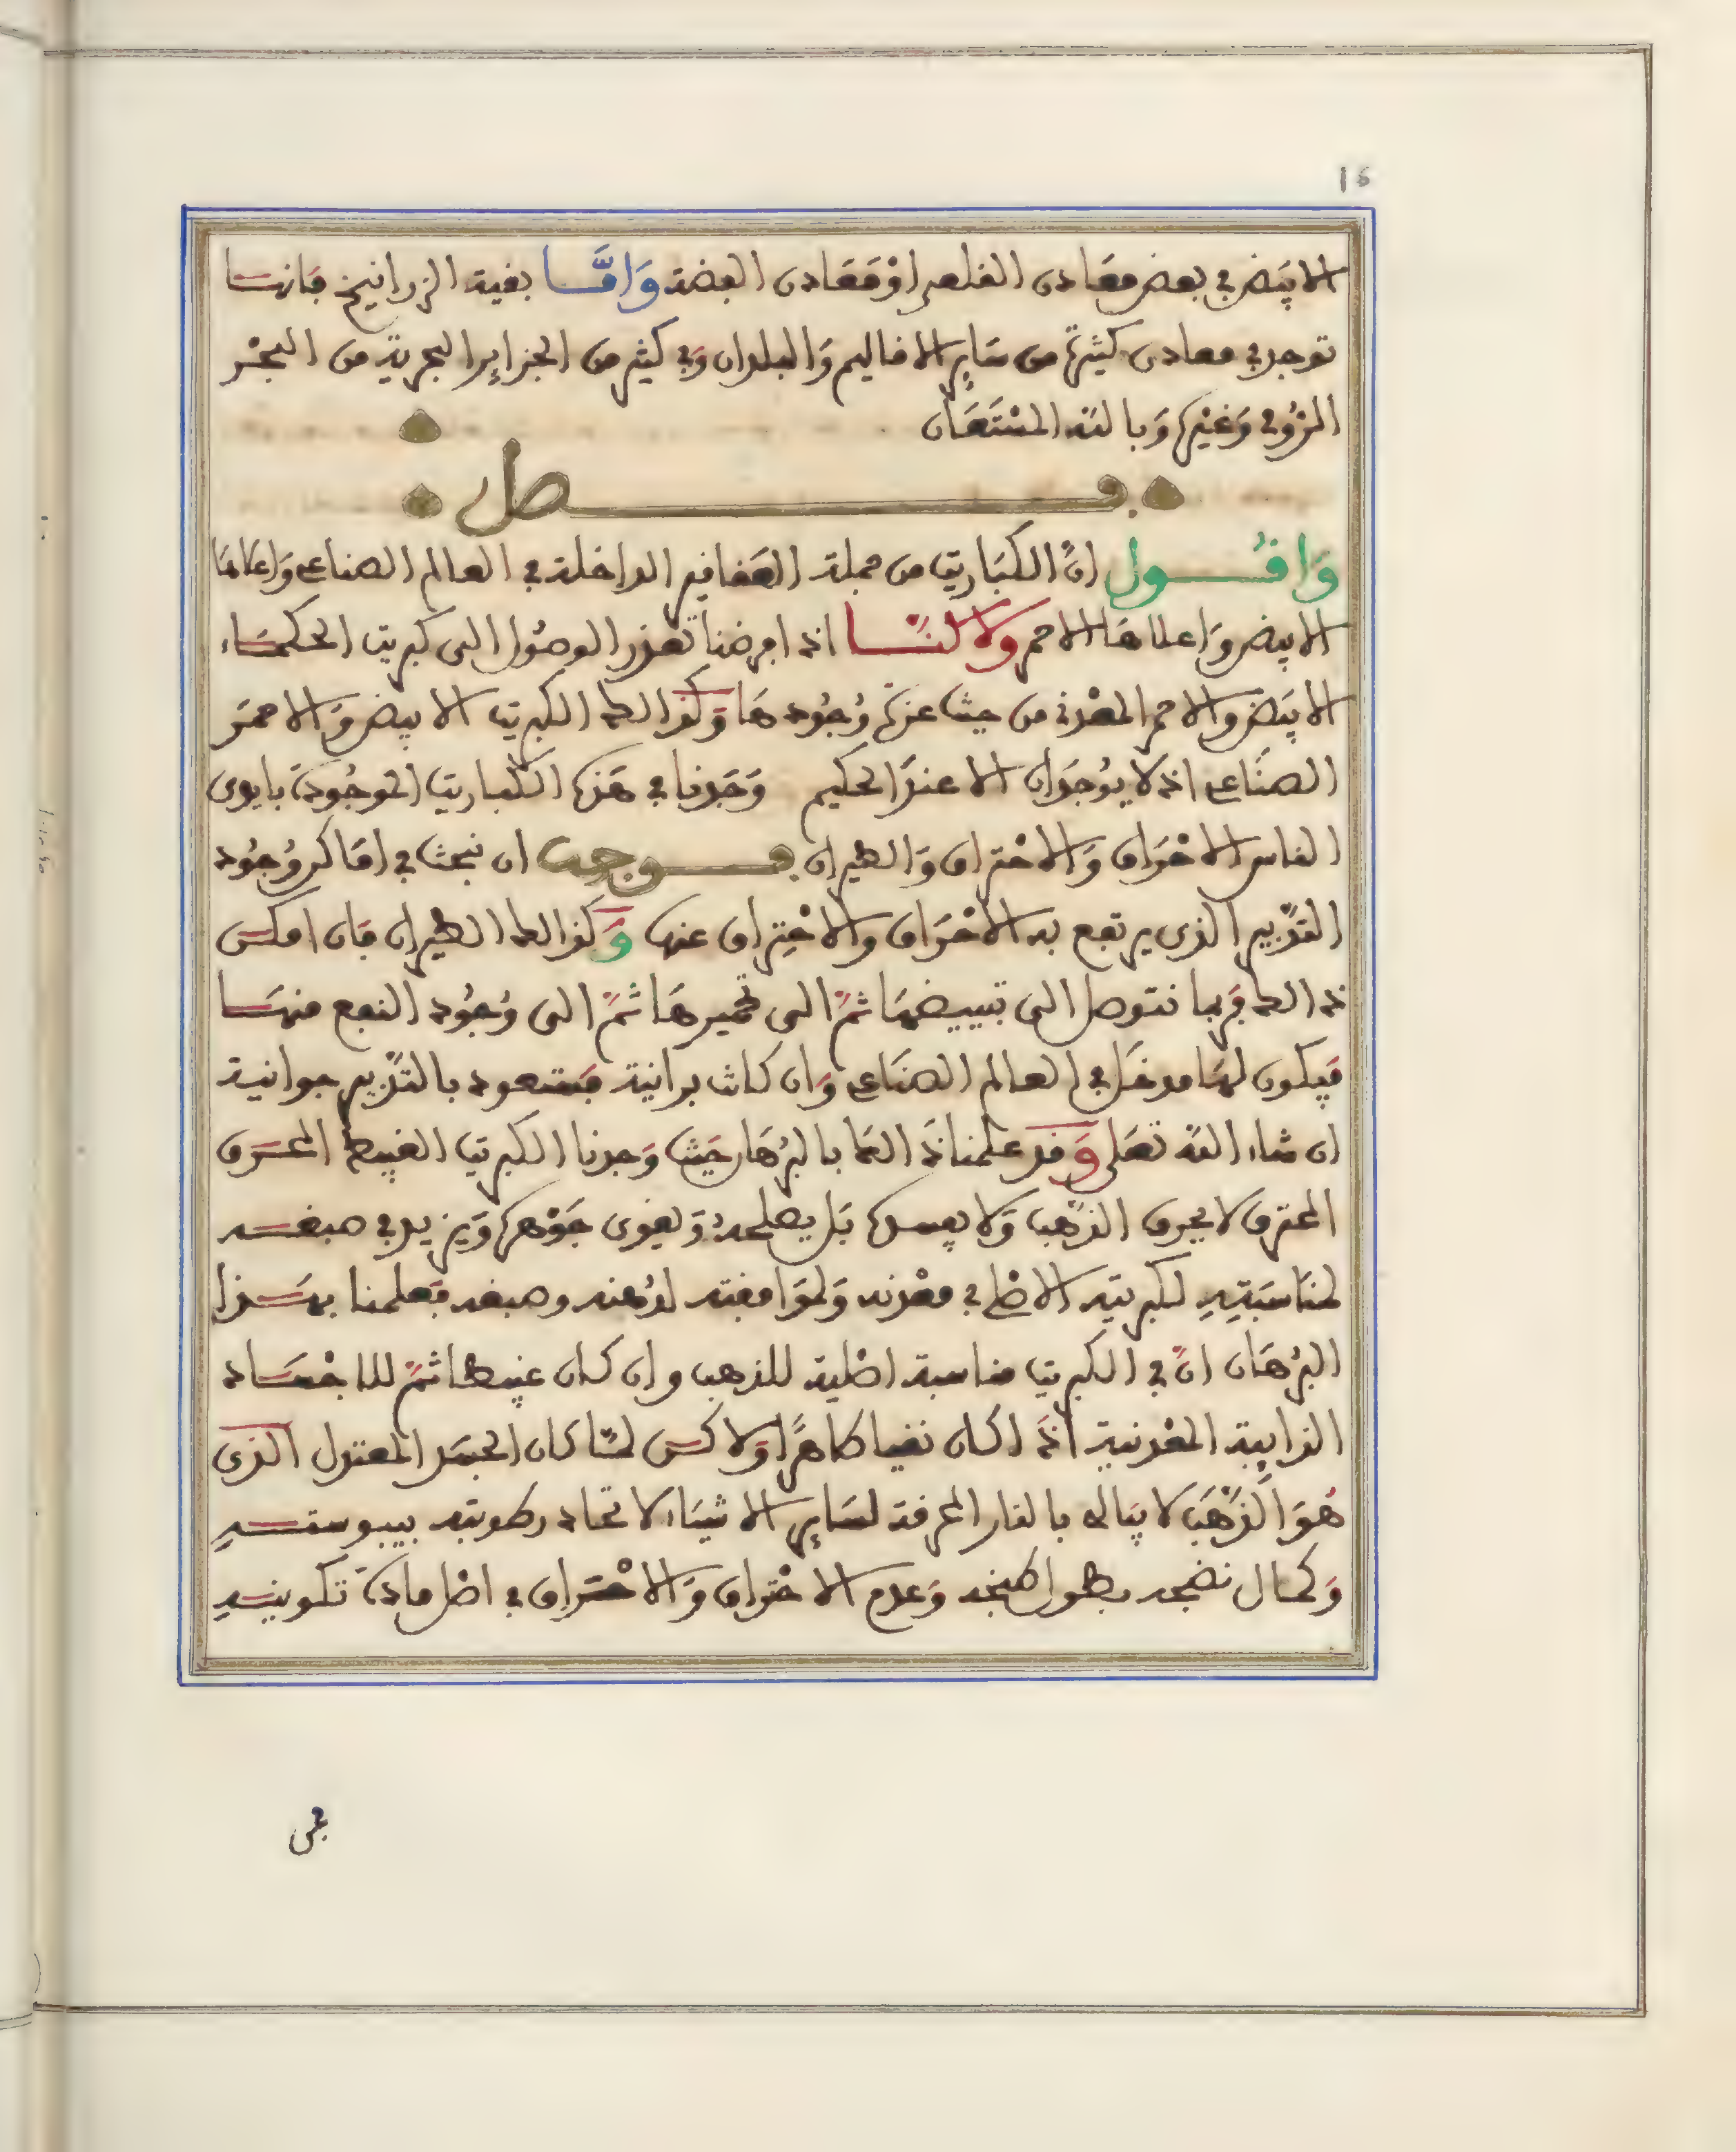 16
الابيض في بعض معادن القلعي او معادن الفضة واما بقية الزرانيخ فانها
توجد في معادن كثيرة من ساير الاقاليم والبلدان وفي كثير من الجزاير البحرية من البحر
الرومي وغيره وبالله المستعان
فصل
واقول ان الكباريت من جملة العقاقير الداخلة في العالم الصناعي واعلاها
الابيض واعلاها الاحمر ولاكنا اذا فرضنا تعذر الوصول الى كبريت الحكماء
الابيض والاحمر المعدني من حيث عزة وجودها وكذالك الكبريت الابيض والاحمر
الصناعي اذ لا يوجدان الا عند الحكيم وجدنا في هذه الكباريت الموجودة بايدي
الناس الاحراق والاحتراق والطيران فوجب ان نبحث في اماكن وجود
التدبير الذي يرتفع به الاحراق والاحتراق عنها وكذالك الطيران فان امكن
ذالك فربما نتوصل الى تبييضها ثم الى تحميرها ثم الى وجود النفع منها
فيكون لها مدخل في العالم الصناعي وان كانت برانية فستعود بالتدبير جوانية
ان شاء الله تعلى وقد علمنا ذالك بالبرهان حيث وجدنا الكبريت الغبيط المحرق
المحترق لا يحرق الذهب ولا يفسده بل يصلحه ويقوي جوهره ويزيد في صبغه
لمناسبته لكبريته الاصلي في معدنه ولموافقته لدهنه وصبغه فعلمنا بهذا
البرهان ان في الكبريت مناسبة اصلية للذهب وان كان غبيطا ثم للاجساد
الذايبة المعدنية اذا كان نقيا طاهرا ولاكن لما كان الجسد المعتدل الذي
هو الذهب لا يباله بالنار المحرقة لساير الاشياء لاتحاد رطوبته بيبوسته
وكمال نضجه بطول طبخه وعدم الاحتراق والاحتراق في اصل مادة تكوينه